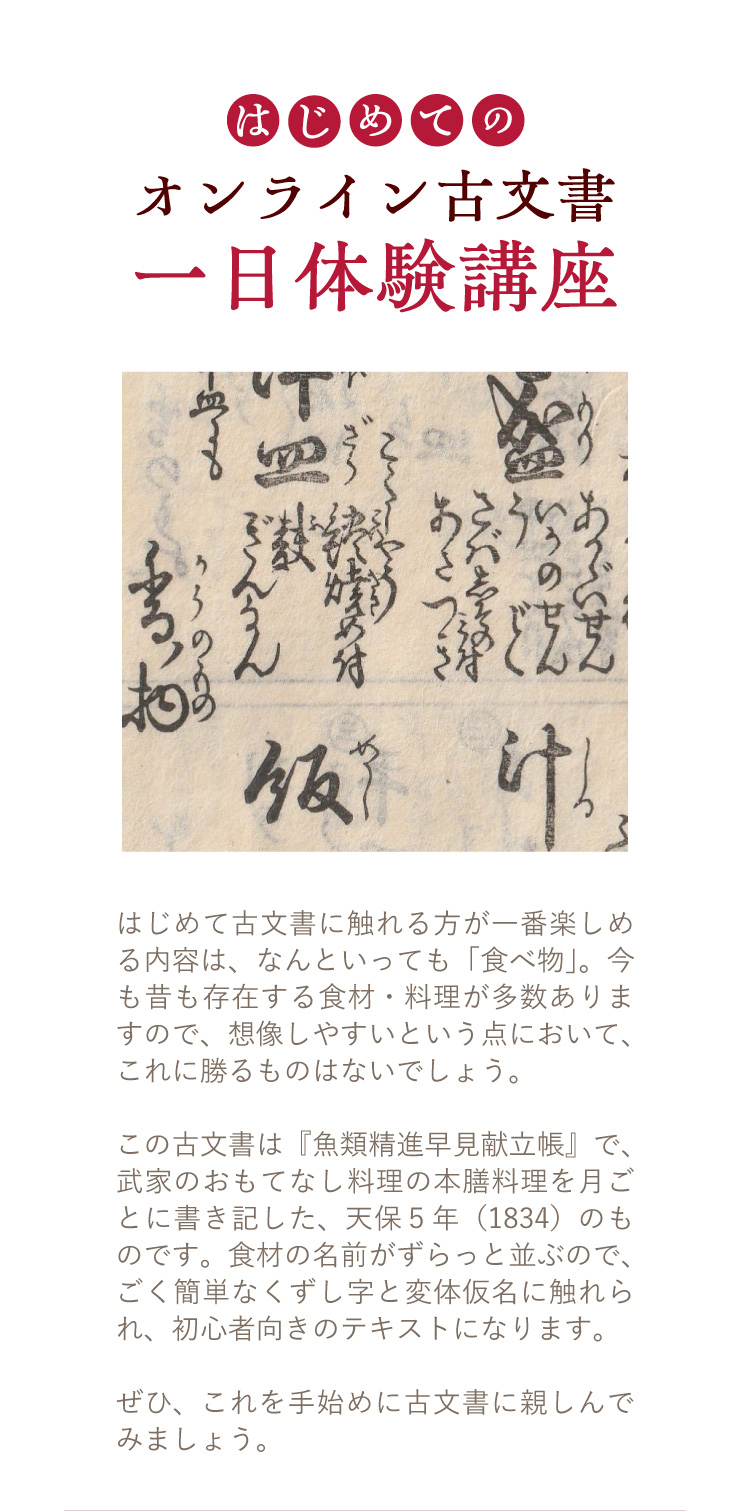 はじめての
オンライン古文書
一日体験講座
盛
もり
あかがいせん
いかのせん
うど
さば
あさつき
ざら
皿
焼め付
ぎんなん
香ノ物
かうのもの
汁
しる
飯
めし
はじめて古文書に触れる方が一番楽しめ
る内容は、なんといっても「食べ物」。今
も昔も存在する食材・料理が多数ありま
すので、想像しやすいという点において、
これに勝るものはないでしょう。
この古文書は『魚類精進早見献立帳』で、
武家のおもてなし料理の本膳料理を月ご
とに書き記した、天保５年（1834）のも
のです。食材の名前がずらっと並ぶので、
ごく簡単なくずし字と変体仮名に触れら
れ、初心者向きのテキストになります。
ぜひ、これを手始めに古文書に親しんで
みましょう。